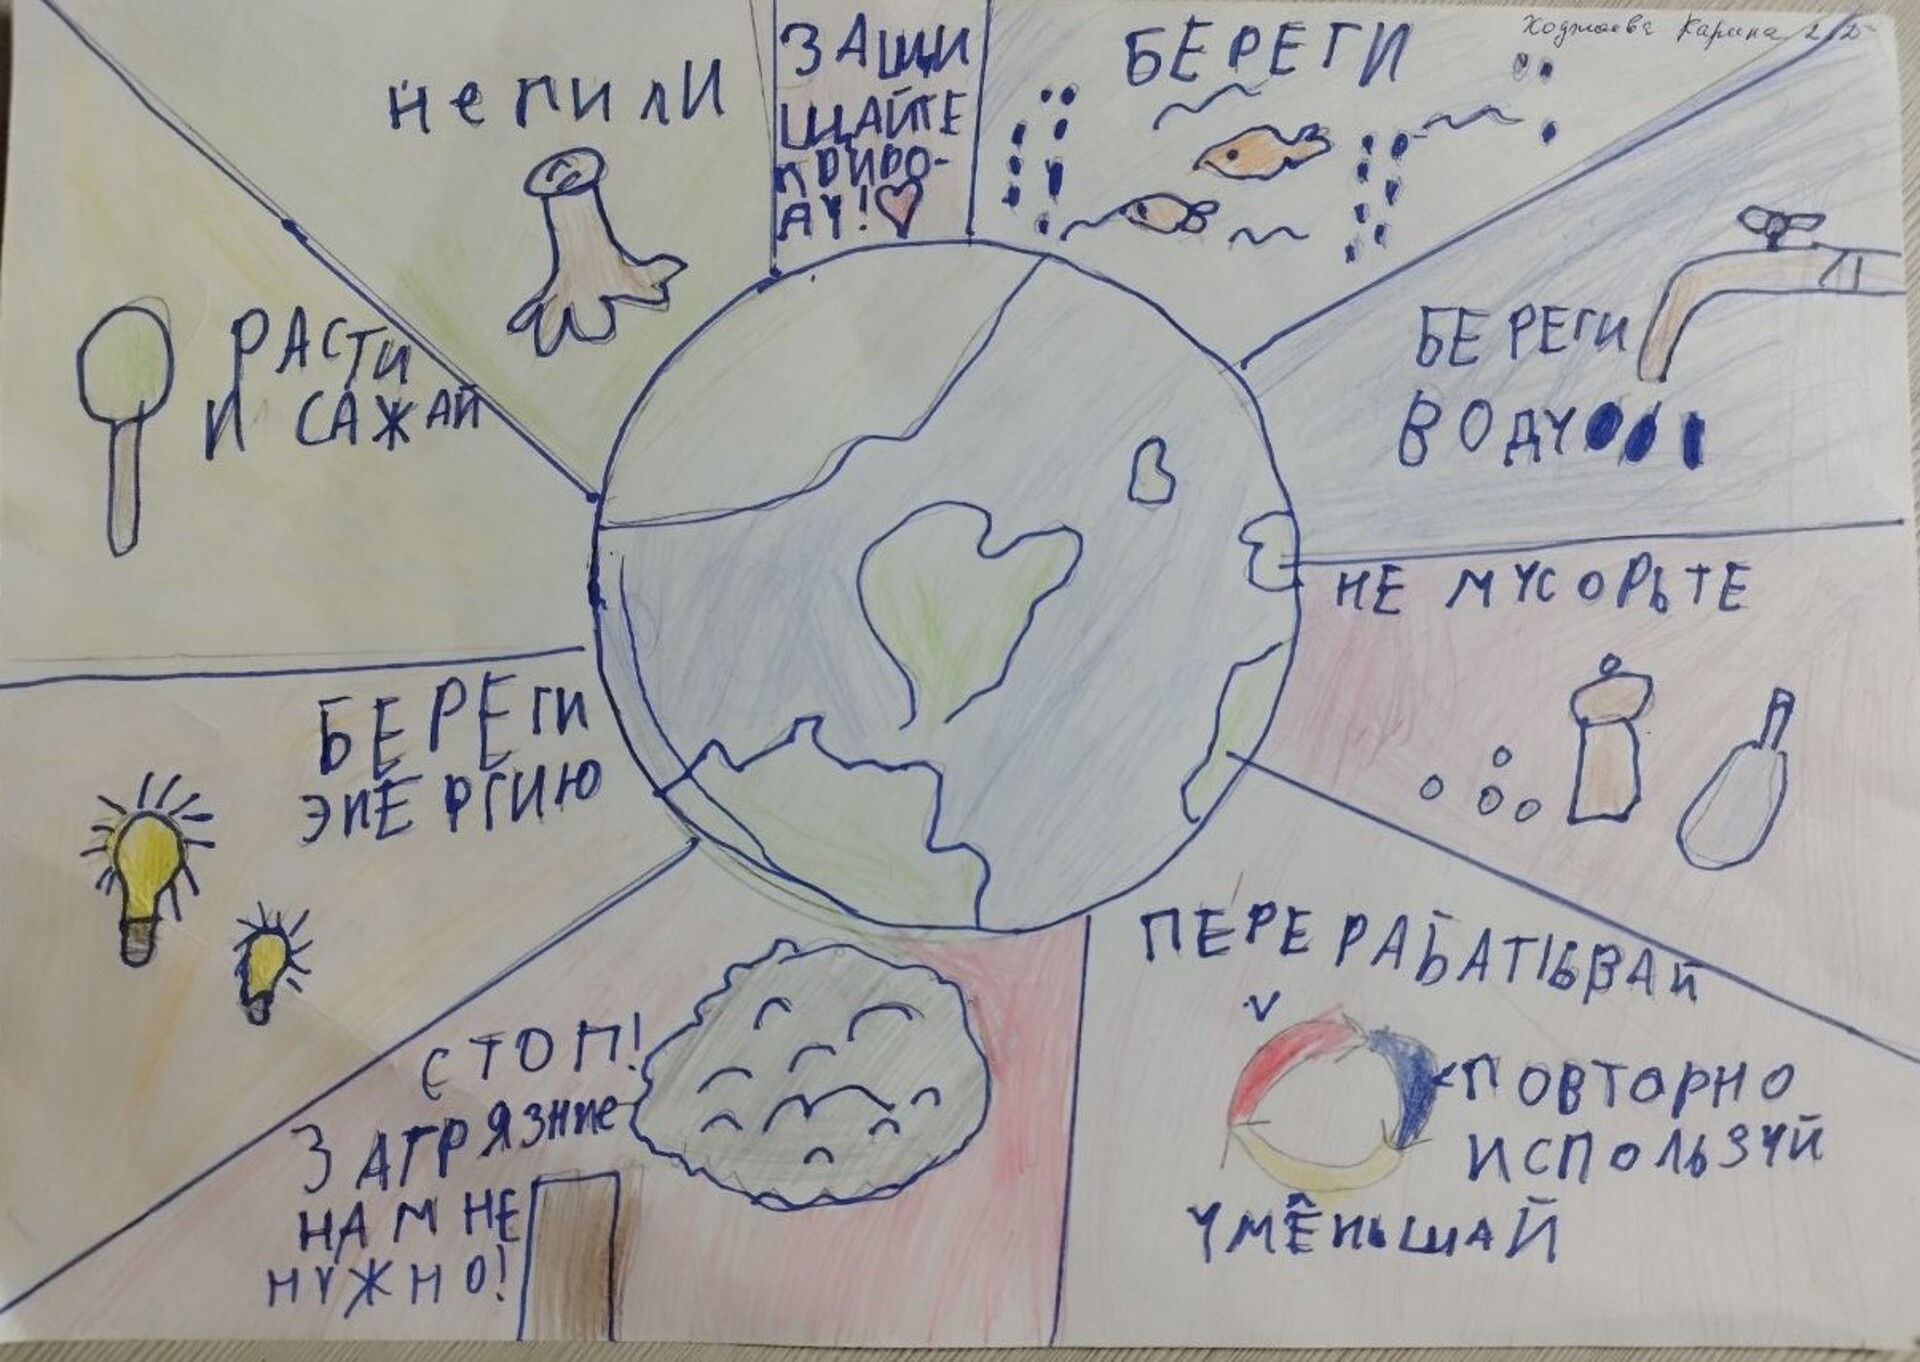 Ходжаева Карина 2 "Д"
НЕ ПИЛИ
ЗАЩИ
ЩАЙТЕ
ПРИРО-
ДУ!
БЕРЕГИ
РАСТИ
И САЖАЙ
БЕРЕГИ
ВОДУ
НЕ МУСОРЬТЕ
БЕРЕГИ
ЭНЕРГИЮ
ПЕРЕРАБАТЫВАЙ
ПОВТОРНО
ИСПОЛЬЗУЙ
УМЕНЬШАЙ
СТОП!
ЗАГРЯЗНИЕ
НАМ НЕ
НУЖНО!